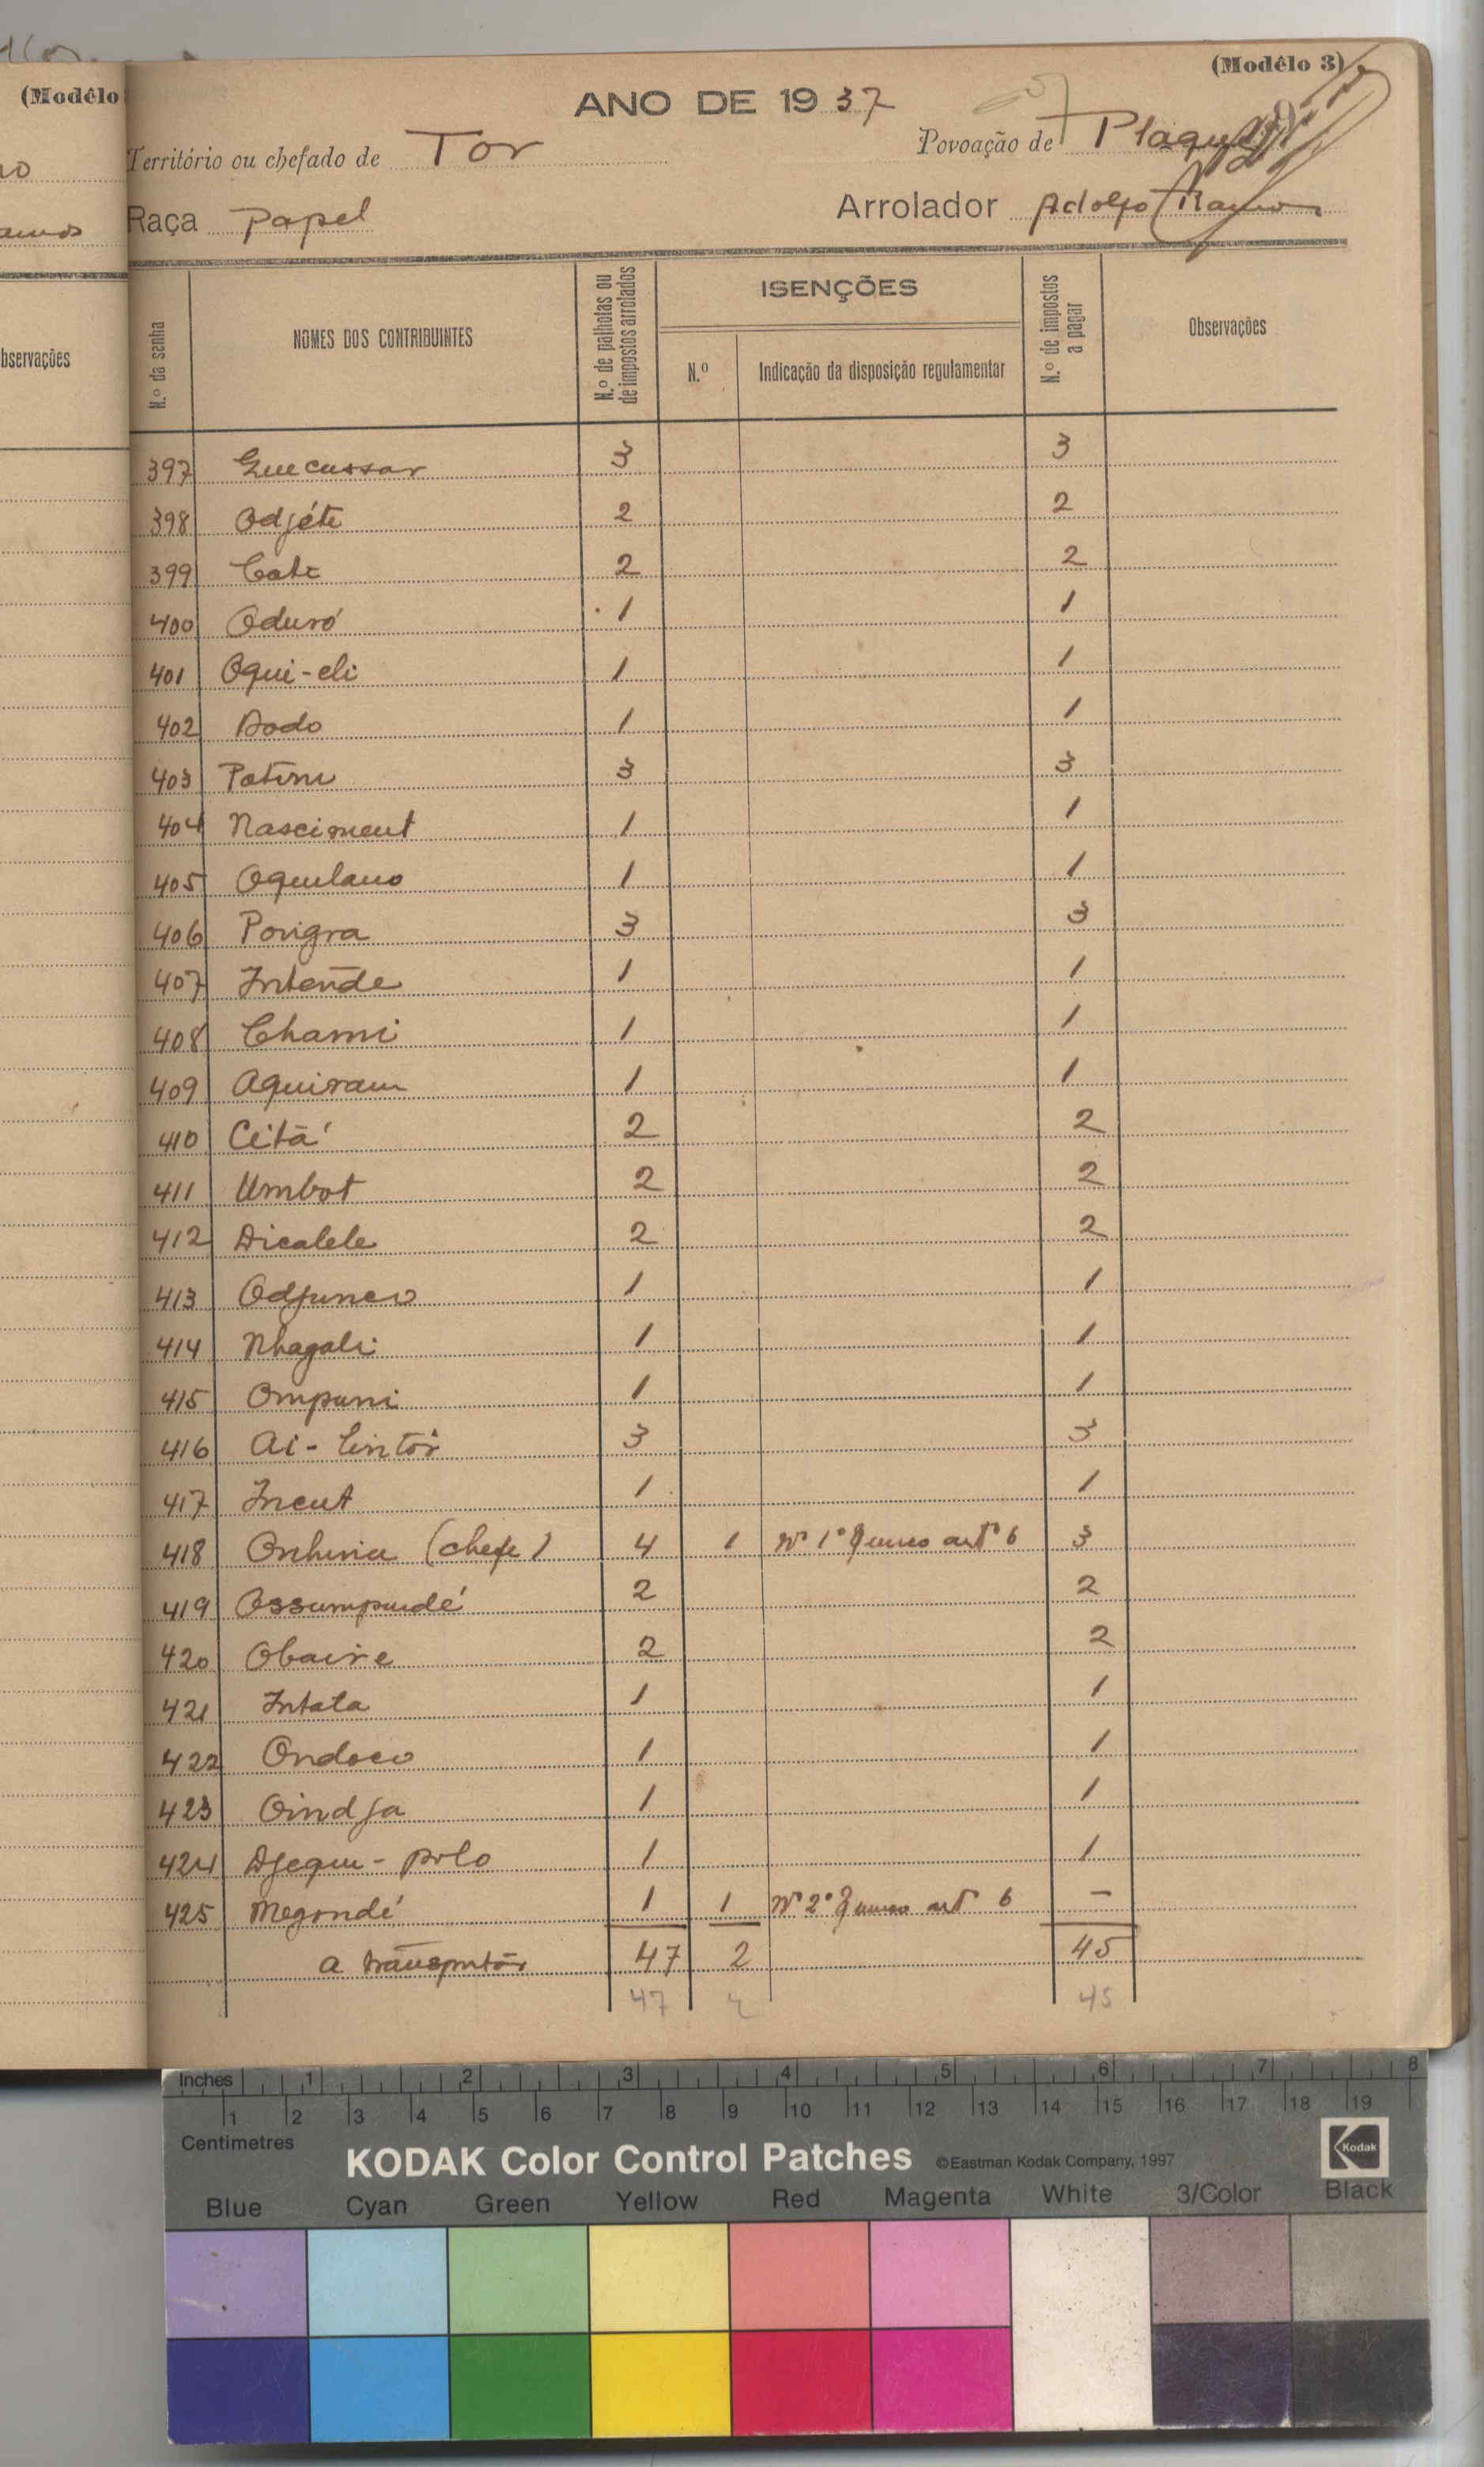 (Modêlo
(Modêlo 3)
ANO DE 1937
Território ou chefado de Tor
Povoação de Plaque
Raça Papel
Arrolador Adolfo Ramos
Observações
N.º da senha
NOMES DOS CONTRIBUINTES
N.º de palhotas ou de impostos arrolados
ISENÇÕES
N.º
Indicação da disposição regulamentar
N.º de impostos a pagar
Observações
397 Quecussar 3 3
398 Odjéte 2 2
399 Cate 2 2
400 Oduró 1 1
401 Oqui-eli 1 1
402 Dodo 1 1
403 Potini 3 3
404 Nasciment 1 1
405 Oquilano 1 1
406 Povigra 3 3
407 Intende 1 1
408 Chami 1 1
409 Aquiram 1 1
410 Citá 2 2
411 Umbot 2 2
412 Dicalele 2 2
413 Odjunco 1 1
414 Nhagali 1 1
415 Ompuni 1 1
416 Ai-Lintór 3 3
417 Incut 1 1
418 (chefe) 4 1 Nº 1º art.º 6 3
419 Ossumpudé 2 2
420 Obaire 2 2
421 Intata 1 1
422 Ondoco 1 1
423 Oindja 1 1
424 Djequi-polo 1 1
425 Megondé 1 1 Nº 2º art 6 —
a transportar 47 2 45
47 2 45
Inches 1 2 3 4 5 6 7 8
1 2 3 4 5 6 7 8 9 10 11 12 13 14 15 16 17 18 19
Centimetres
KODAK Color Control Patches ©Eastman Kodak Company, 1997 Kodak
Blue Cyan Green Yellow Red Magenta White 3/Color Black